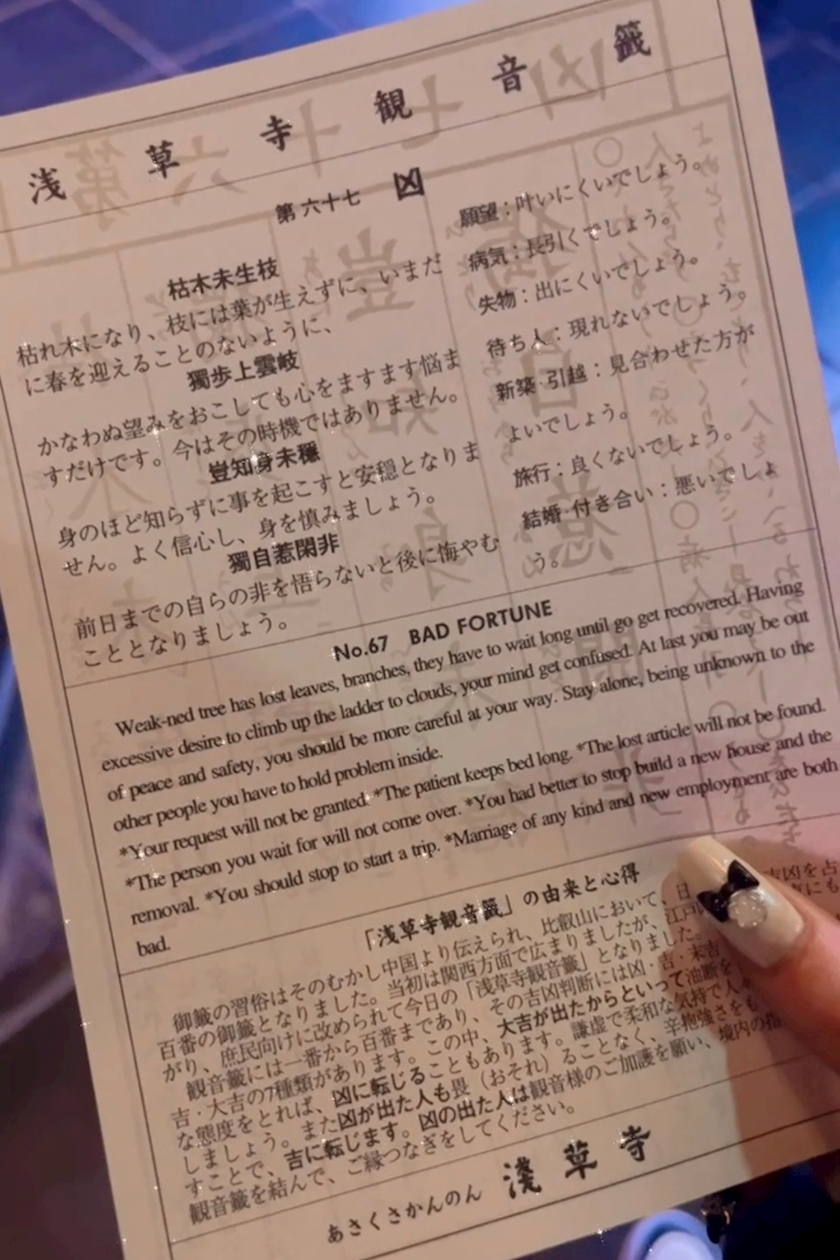 浅草寺観音籤
第六十七 凶
枯木未生枝
枯れ木になり、枝には葉が生えずに、いまだ
に春を迎えることのないように、
獨歩上雲岐
かなわぬ望みをおこしても心をますます悩ま
すだけです。今はその時機ではありません。
豈知身未穩
身のほど知らずに事を起こすと安穏となりま
せん。よく信心し、身を慎みましょう。
獨自惹閑非
前日までの自らの非を悟らないと後に悔やむ
こととなりましょう。
願望：叶いにくいでしょう。
病気：長引くでしょう。
失物：出にくいでしょう。
待ち人：現れないでしょう。
新築·引越：見合わせた方が
よいでしょう。
旅行：良くないでしょう。
結婚·付き合い：悪いでしょ
う。
No.67 BAD FORTUNE
Weak-ned tree has lost leaves, branches, they have to wait long until go get recovered. Having
excessive desire to climb up the ladder to clouds, your mind get confused. At last you may be out
of peace and safety, you should be more careful at your way. Stay alone, being unknown to the
other people you have to hold problem inside.
*Your request will not be granted. *The patient keeps bed long. *The lost article will not be found.
*The person you wait for will not come over. *You had better to stop build a new house and the
removal. *You should stop to start a trip. *Marriage of any kind and new employment are both
bad.
「浅草寺観音籤」の由来と心得
御籤の習俗はそのむかし中国より伝えられ、比叡山において、日 吉凶を占
百番の御籤となりました。当初は関西方面で広まりましたが、江戸 にも
がり、庶民向けに改められて今日の「浅草寺観音籤」となりました。
観音籤には一番から百番まであり、その吉凶判断には凶·吉·末吉
吉·大吉の7種類があります。この中、大吉が出たからといって油断を
な態度をとれば、凶に転じることもあります。謙虚で柔和な気持で人々
しましょう。また凶が出た人も畏（おそれ）ることなく、辛抱強さをも
すことで、吉に転じます。凶の出た人は観音様のご加護を願い、境内の指
観音籤を結んで、ご縁つなぎをしてください。
あさくさかんのん 淺草寺